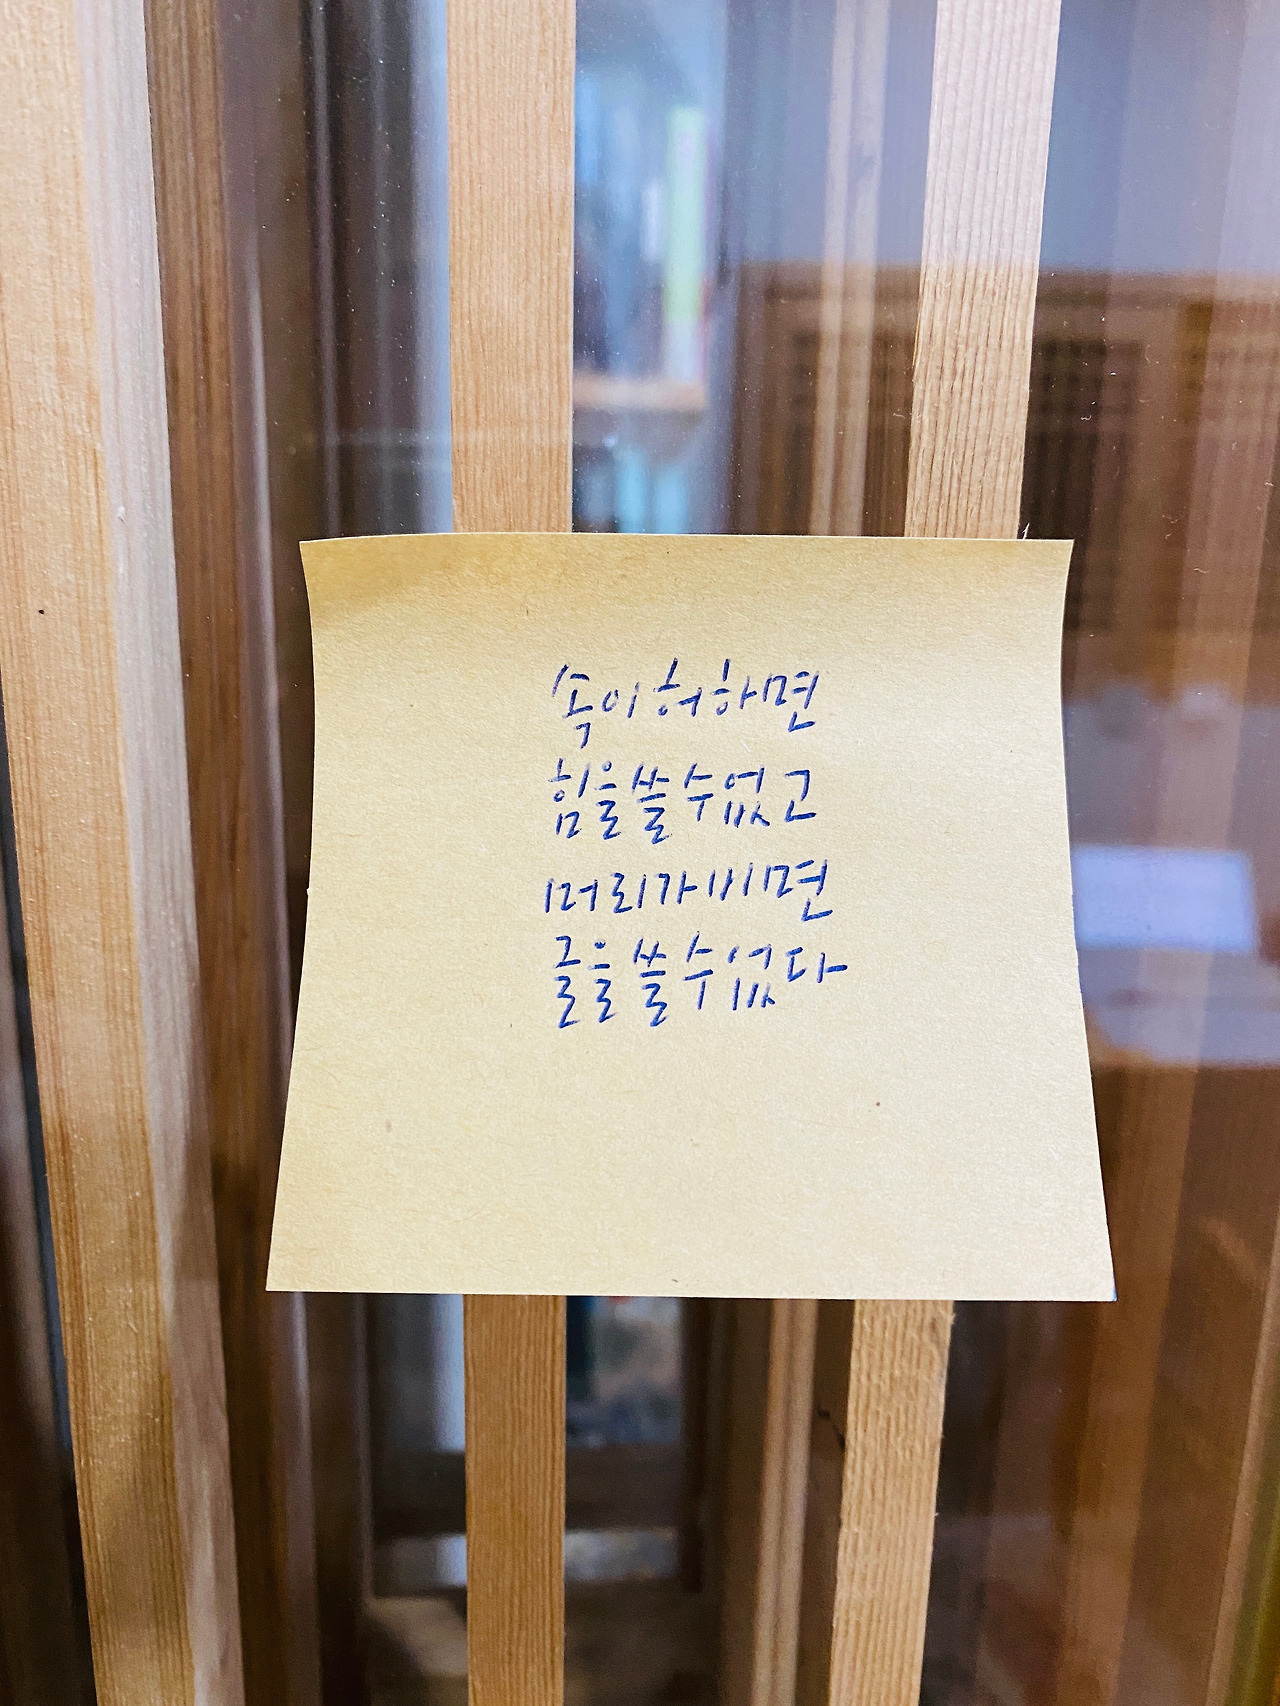 속이 허하면
힘을 쓸 수 없고
머리가 비면
글을 쓸 수 없다